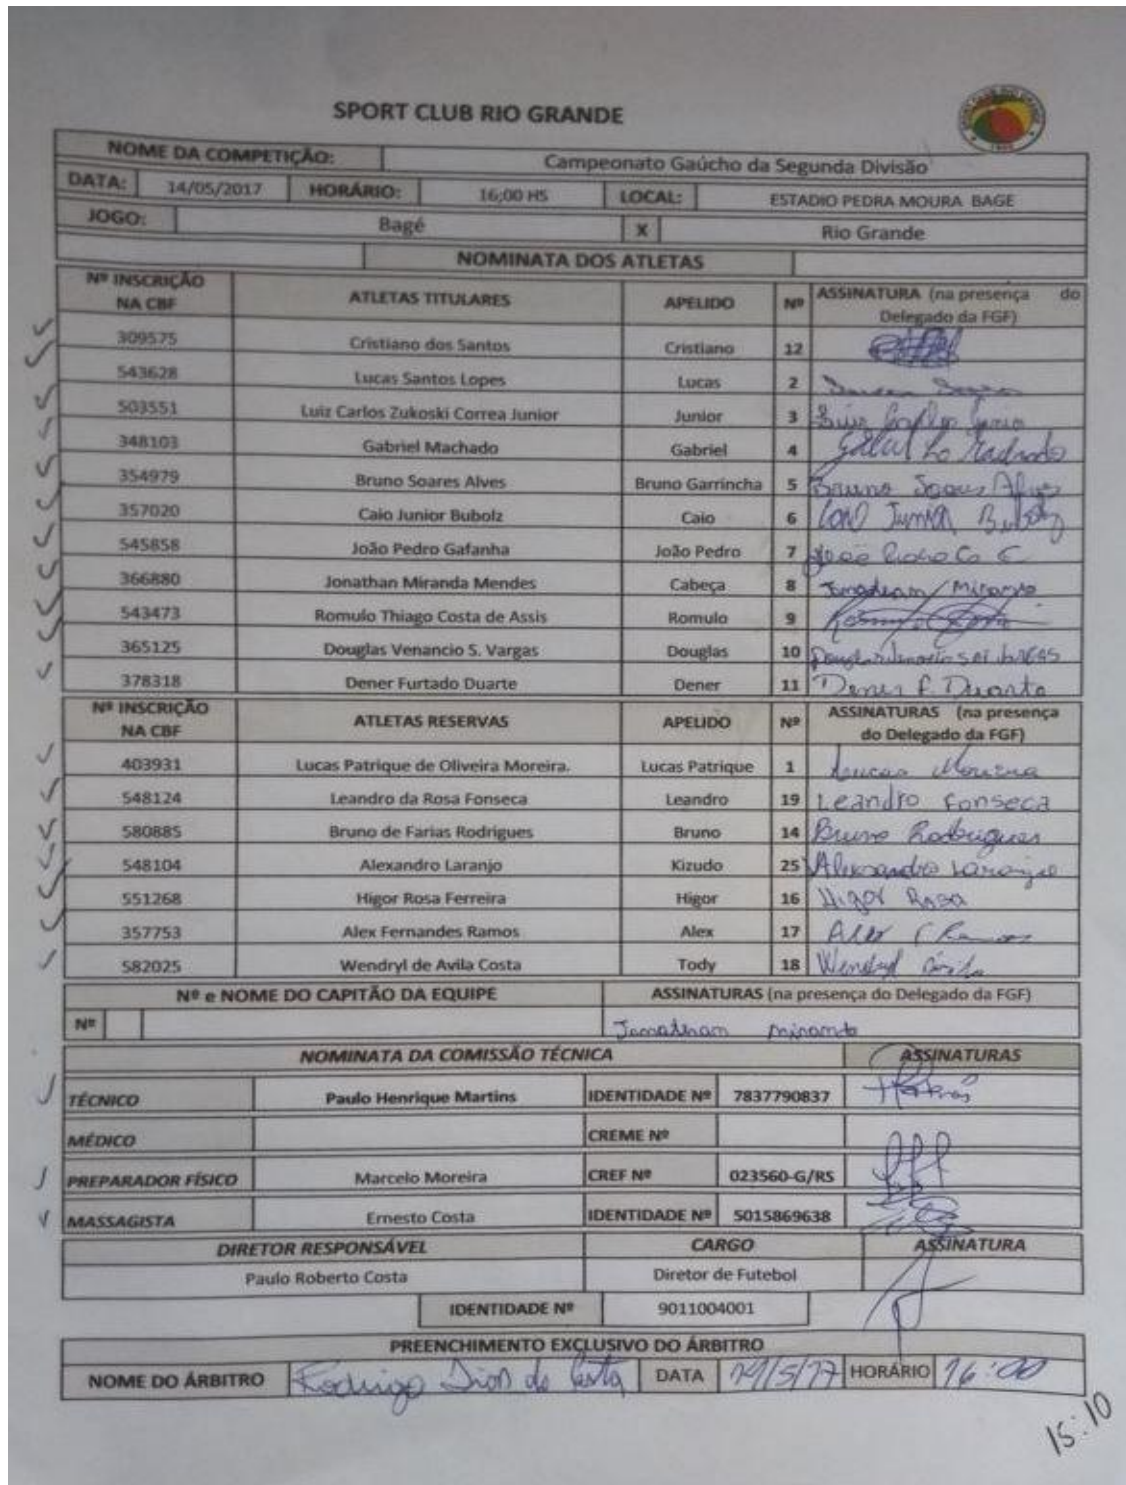 SPORT CLUB RIO GRANDE
NOME DA COMPETIÇÃO: Campeonato Gaúcho da Segunda Divisão
DATA: 14/05/2017 HORÁRIO: 16;00 HS LOCAL: ESTADIO PEDRA MOURA BAGE
JOGO: Bagé X Rio Grande
NOMINATA DOS ATLETAS
Nº INSCRIÇÃO NA CBF ATLETAS TITULARES APELIDO Nº ASSINATURA (na presença do Delegado da FGF)
309575 Cristiano dos Santos Cristiano 12
543628 Lucas Santos Lopes Lucas 2
503551 Luiz Carlos Zukoski Correa Junior Junior 3 Luiz Carlos Junior
348103 Gabriel Machado Gabriel 4 Machado
354979 Bruno Soares Alves Bruno Garrincha 5 Bruno Soares Alves
357020 Caio Junior Bubolz Caio 6 Caio Junior Bubolz
545858 João Pedro Gafanha João Pedro 7
366880 Jonathan Miranda Mendes Cabeça 8 Jonathan Miranda
543473 Romulo Thiago Costa de Assis Romulo 9
365125 Douglas Venancio S. Vargas Douglas 10
378318 Dener Furtado Duarte Dener 11 Dener F. Duarte
Nº INSCRIÇÃO NA CBF ATLETAS RESERVAS APELIDO Nº ASSINATURAS (na presença do Delegado da FGF)
403931 Lucas Patrique de Oliveira Moreira. Lucas Patrique 1 Lucas Moreira
548124 Leandro da Rosa Fonseca Leandro 19 Leandro Fonseca
580885 Bruno de Farias Rodrigues Bruno 14 Bruno Rodrigues
548104 Alexandro Laranjo Kizudo 25 Alexsandro Laranjo
551268 Higor Rosa Ferreira Higor 16 Higor Rosa
357753 Alex Fernandes Ramos Alex 17 Alex F Ramos
582025 Wendryl de Avila Costa Tody 18 Wendryl Avila
Nº e NOME DO CAPITÃO DA EQUIPE ASSINATURAS (na presença do Delegado da FGF)
Nº Jonathan Miranda
NOMINATA DA COMISSÃO TÉCNICA ASSINATURAS
TÉCNICO Paulo Henrique Martins IDENTIDADE Nº 7837790837
MÉDICO CREME Nº
PREPARADOR FÍSICO Marcelo Moreira CREF Nº 023560-G/RS
MASSAGISTA Ernesto Costa IDENTIDADE Nº 5015869638
DIRETOR RESPONSÁVEL CARGO ASSINATURA
Paulo Roberto Costa Diretor de Futebol
IDENTIDADE Nº 9011004001
PREENCHIMENTO EXCLUSIVO DO ÁRBITRO
NOME DO ÁRBITRO Rodrigo Dion da Costa DATA 14/5/17 HORÁRIO 16:00
15:10